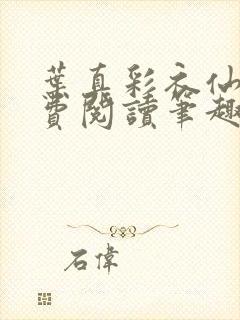 葉真彩衣仙
費閱讀筆趣
石偉